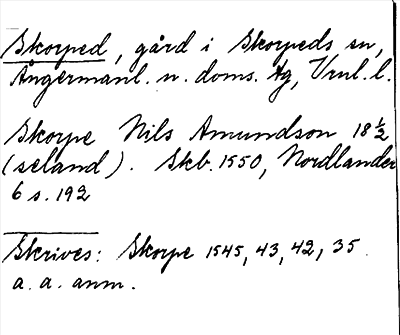 Skorped, gård i Skorpeds sn,
Ångermanl. n. doms. tg, Vrnl. l.
Skorpe Nils Amundson 18 ½
(seland). Skb. 1550, Nordlander
6 s. 192
Skrives: Skorpe 1545, 43, 42, 35.
a. a. anm.